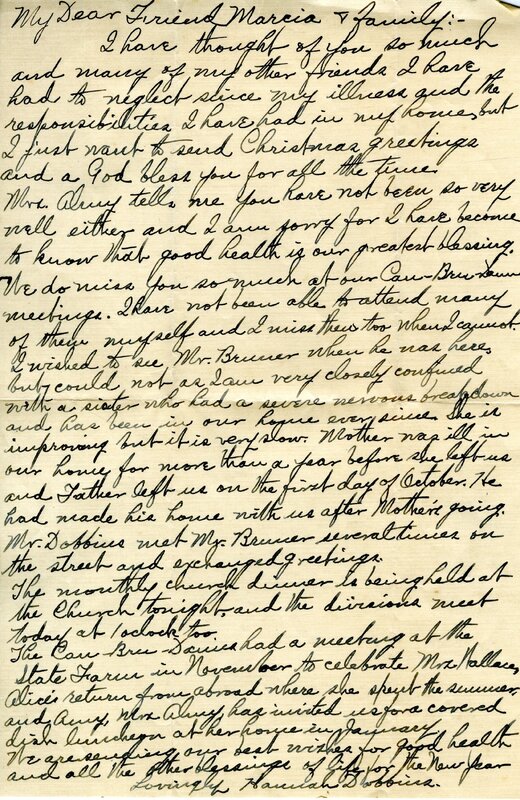 My Dear Friend Marcia & family:-
I have thought of you so much
and many of my other friends I have
had to neglect since my illness and the
responsibilities I have had in my home, but
I just want to send Christmas greetings
and a God bless you for all the time.
Mrs. Almy tells me you have not been so very
well either and I am sorry for I have become
to know that good health is our greatest blessing.
We do miss you so much at our Can-Bru-Dam
meetings. I have not been able to attend many
of them myself and I miss them too when I cannot.
I wished to see Mr. Bruner when he was here,
but could not as I am very closely confined
with a sister who had a severe nervous breakdown
and has been in our home ever since. She is
improving but it is very slow. Mother was ill in
our home for more than a year before she left us
and Father left us on the first day of October. He
had made his home with us after Mother's going.
Mr. Dobbins met Mr. Bruner several times on
the street and exchanged greetings.
The monthly church dinner is being held at
the Church tonight, and the divisions meet
today at 1 o'clock, too.
The Can-Bru-Dams had a meeting at the
State Farm in November to celebrate Mrs. Wallace,
Alice's return from abroad where she spent the summer.
and Amy, Mrs. Almy, has invited us for a covered
dish luncheon at her home in January.
We are sending our best wishes for good health
and all the other blessings of life for the New Year
Lovingly Hannah Dobbins.